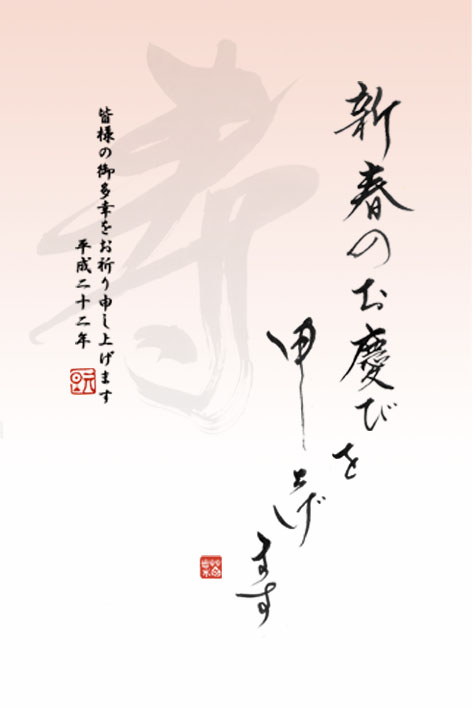 新春のお慶びを
申し上げ
ます
皆様の御多幸をお祈り申し上げます
平成二十二年
元旦
寿